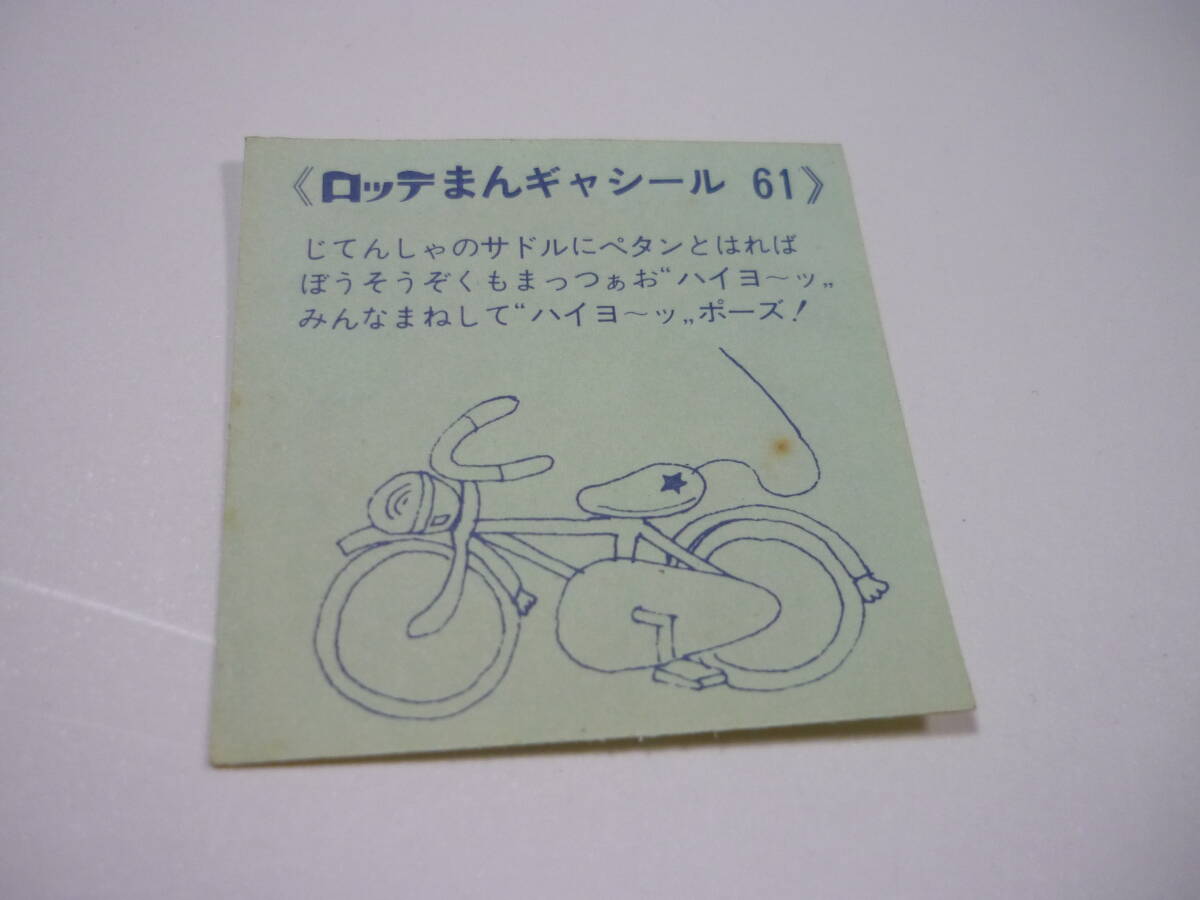 《ロッテまんギャシール 61》
じてんしゃのサドルにペタンとはれば
ぼうそうぞくもまっつぁお“ハイヨ〜ッ„
みんなまねして“ハイヨ〜ッ„ポーズ!